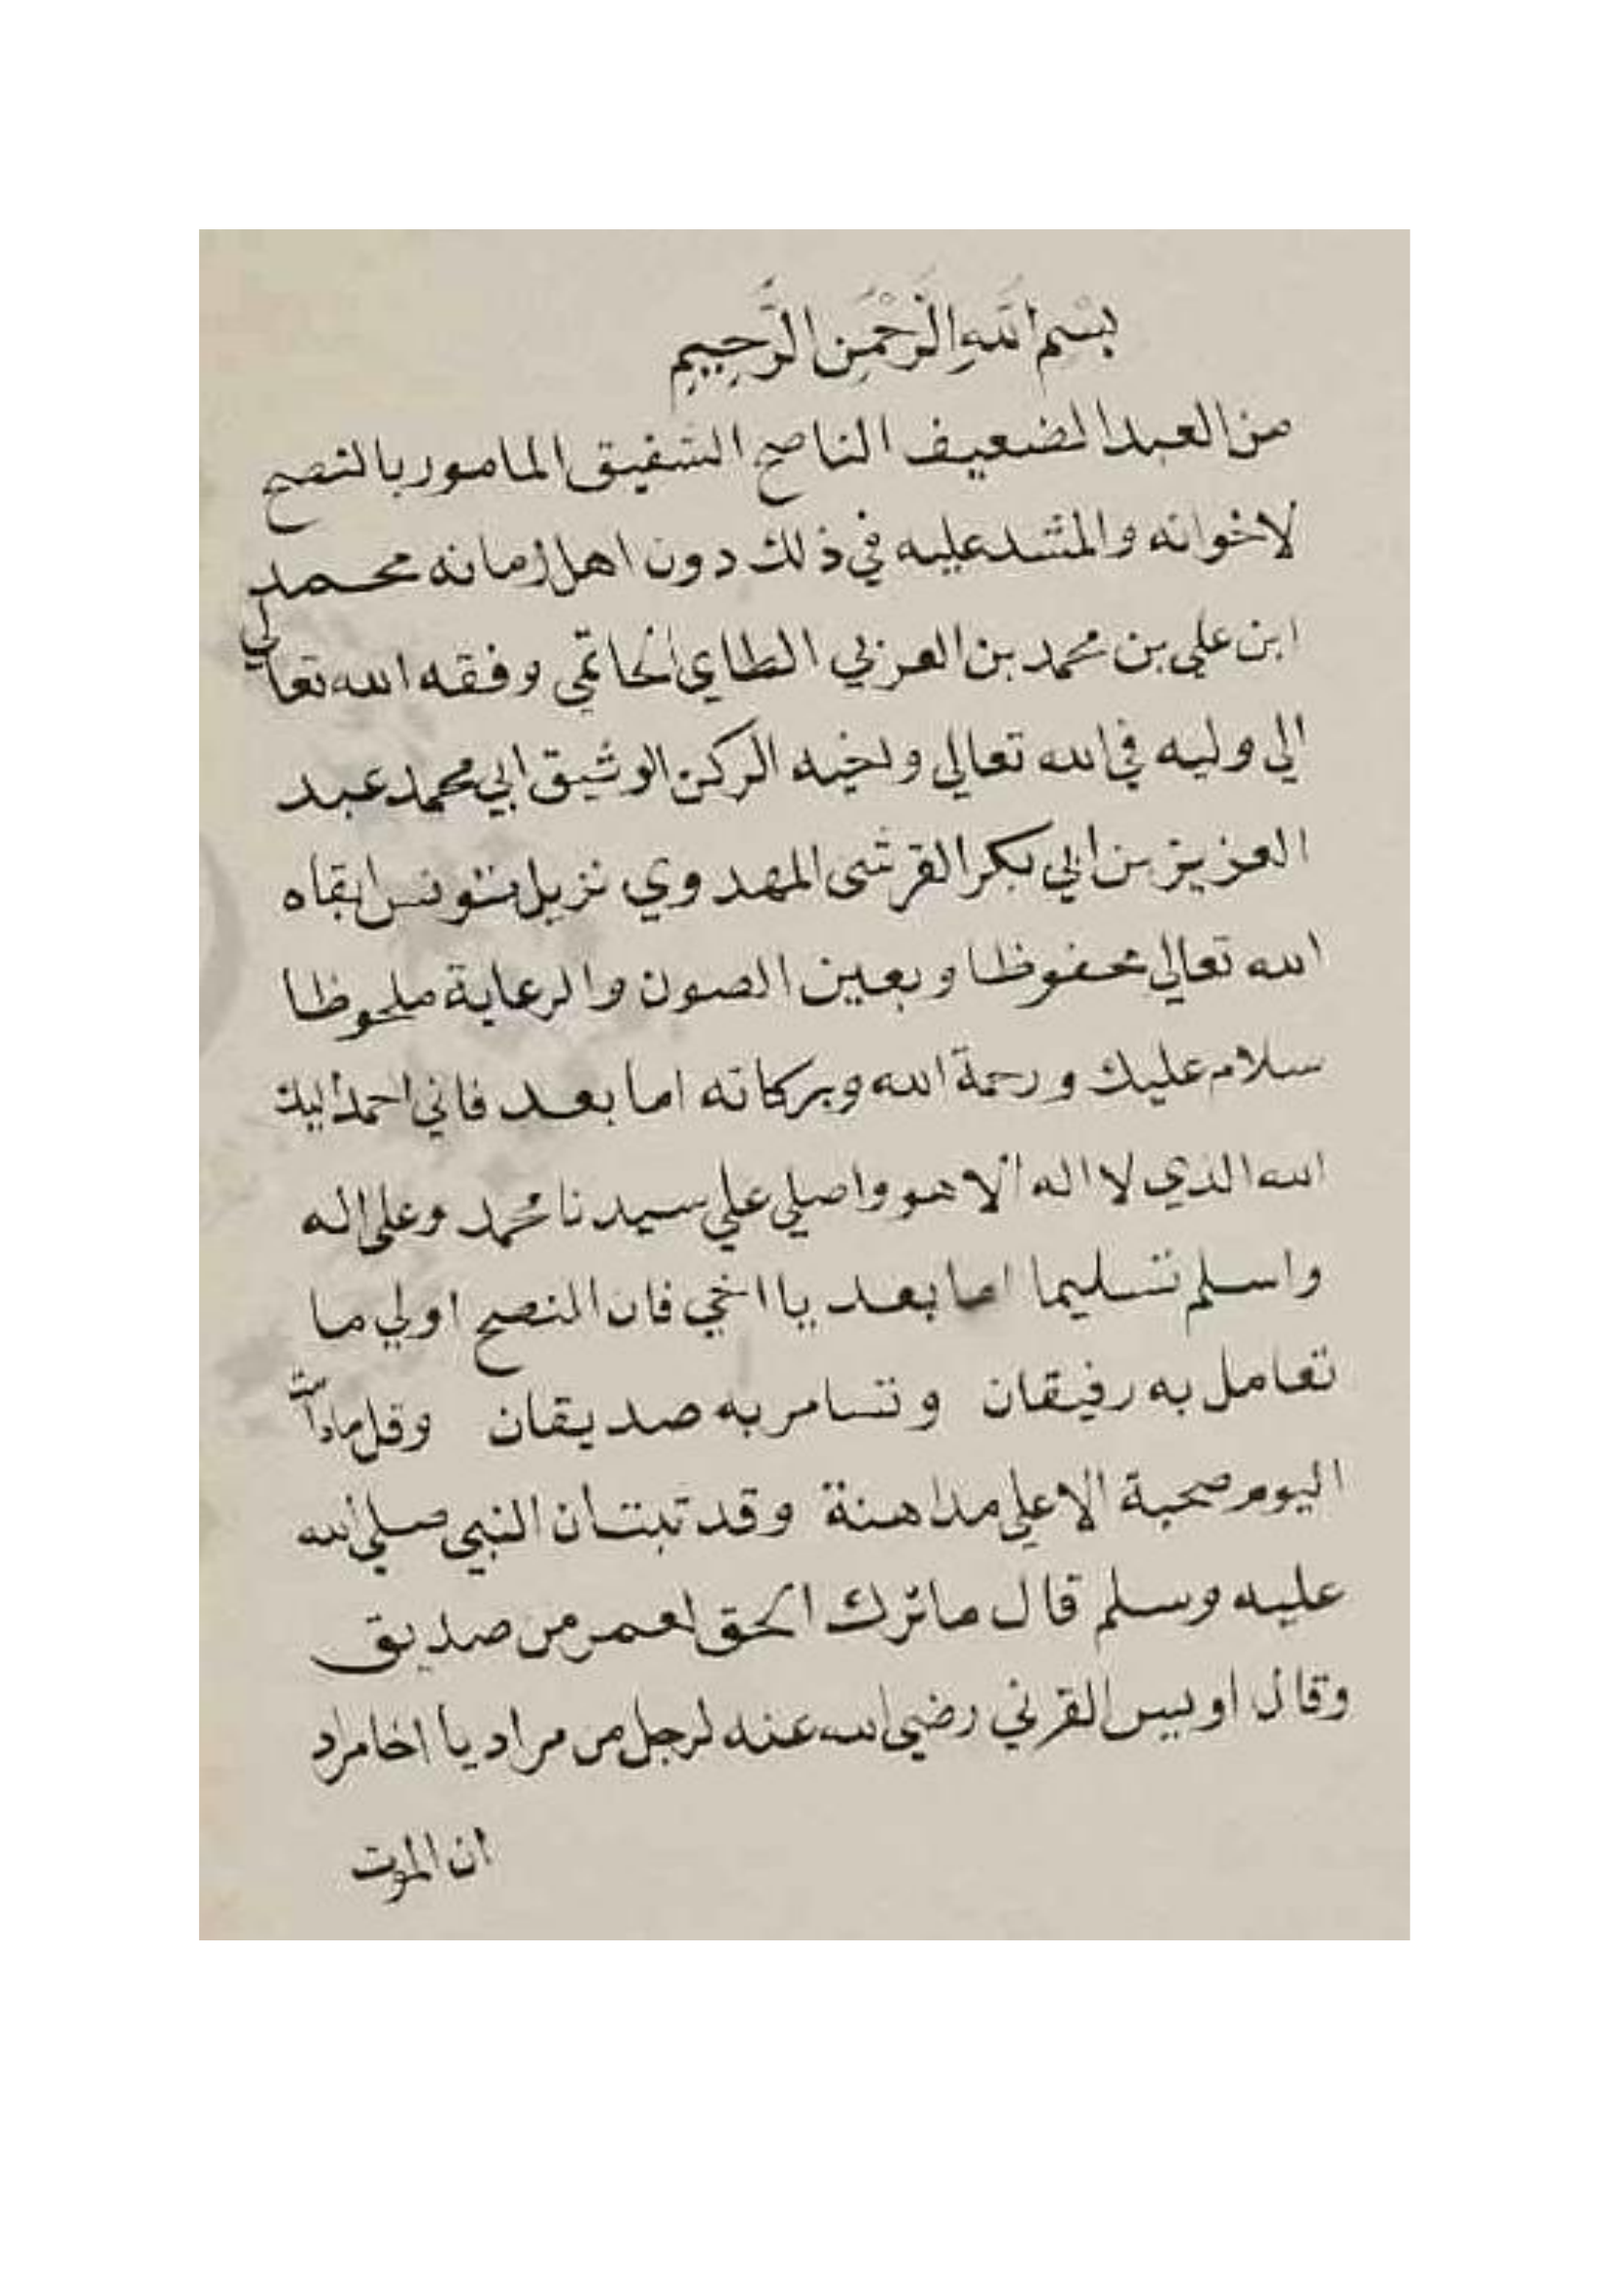 بِسْمِ اللَّهِ الرَّحْمَنِ الرَّحِيمِ
من العبد الضعيف الناصح الشفيق المامور بالنصح
لاخوانه والمشد عليه في ذلك دون اهل زمانه محمد
ابن علي بن محمد بن العربي الطاي الحاتمي وفقه الله تعالي
الي وليه في الله تعالي واخيه الركن الوثيق ابي محمد عبد
العزيز بن ابي بكر القرشي المهدوي نزيل بتونس ابقاه
الله تعالي محفوظا وبعين الصون والرعاية ملحوظا
سلام عليك ورحمة الله وبركاته اما بعد فاني احمد اليك
الله الذي لا اله الا هو واصلي علي سيدنا محمد وعلى اله
واسلم تسليما اما بعد يا اخي فان النصح اولي ما
تعامل به رفيقان وتسامر به صديقان وقل ما دامت
اليوم صحبة الا علي مداهنة وقد ثبت ان النبي صلي الله
عليه وسلم قال ما ترك الحق لعمر من صديق
وقال اويس القرني رضي الله عنه لرجل من مراد يا اخا مراد
ان الموت